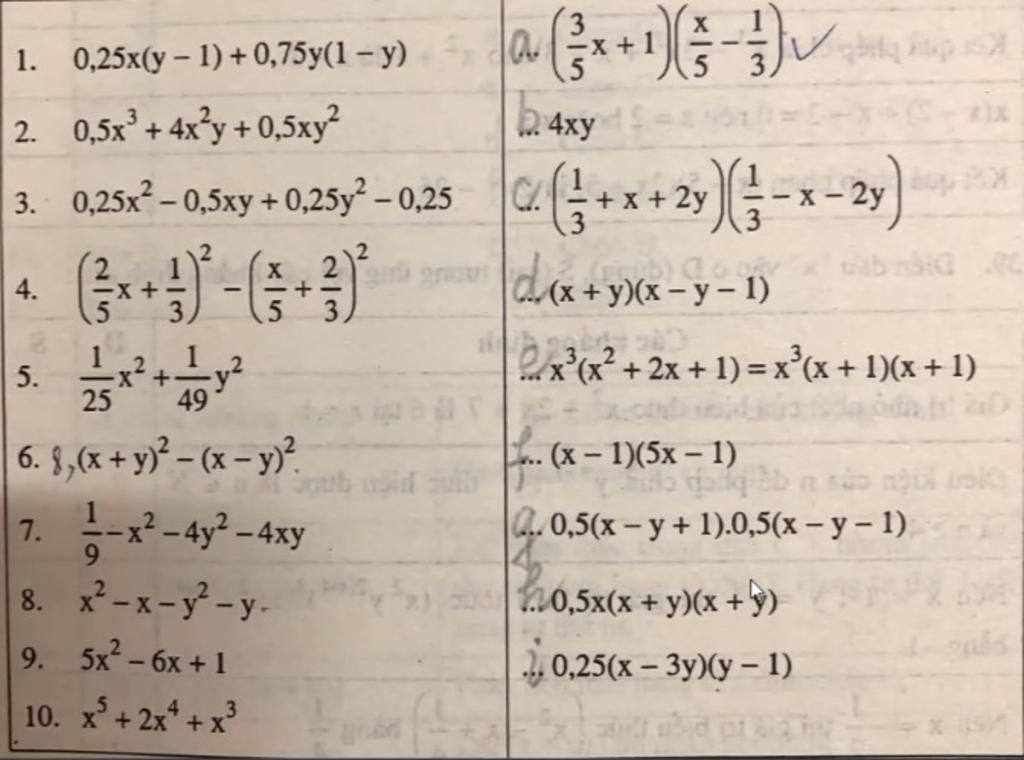 1. 0,25x(y – 1) + 0,75y(1 – y)
a... (3/5 x + 1)(x/5 – 1/3)
2. 0,5x³ + 4x²y + 0,5xy²
b... 4xy
3. 0,25x² – 0,5xy + 0,25y² – 0,25
c... (1/3 + x + 2y)(1/3 – x – 2y)
4. (2/5 x + 1/3)² – (x/5 + 2/3)²
d... (x + y)(x – y – 1)
5. 1/25 x² + 1/49 y²
e... x³(x² + 2x + 1) = x³(x + 1)(x + 1)
6. 8, (x + y)² – (x – y)².
f... (x – 1)(5x – 1)
7. 1/9 – x² – 4y² – 4xy
g... 0,5(x – y + 1).0,5(x – y – 1)
8. x² – x – y² – y.
h... 0,5x(x + y)(x + y)
9. 5x² – 6x + 1
i... 0,25(x – 3y)(y – 1)
10. x⁵ + 2x⁴ + x³